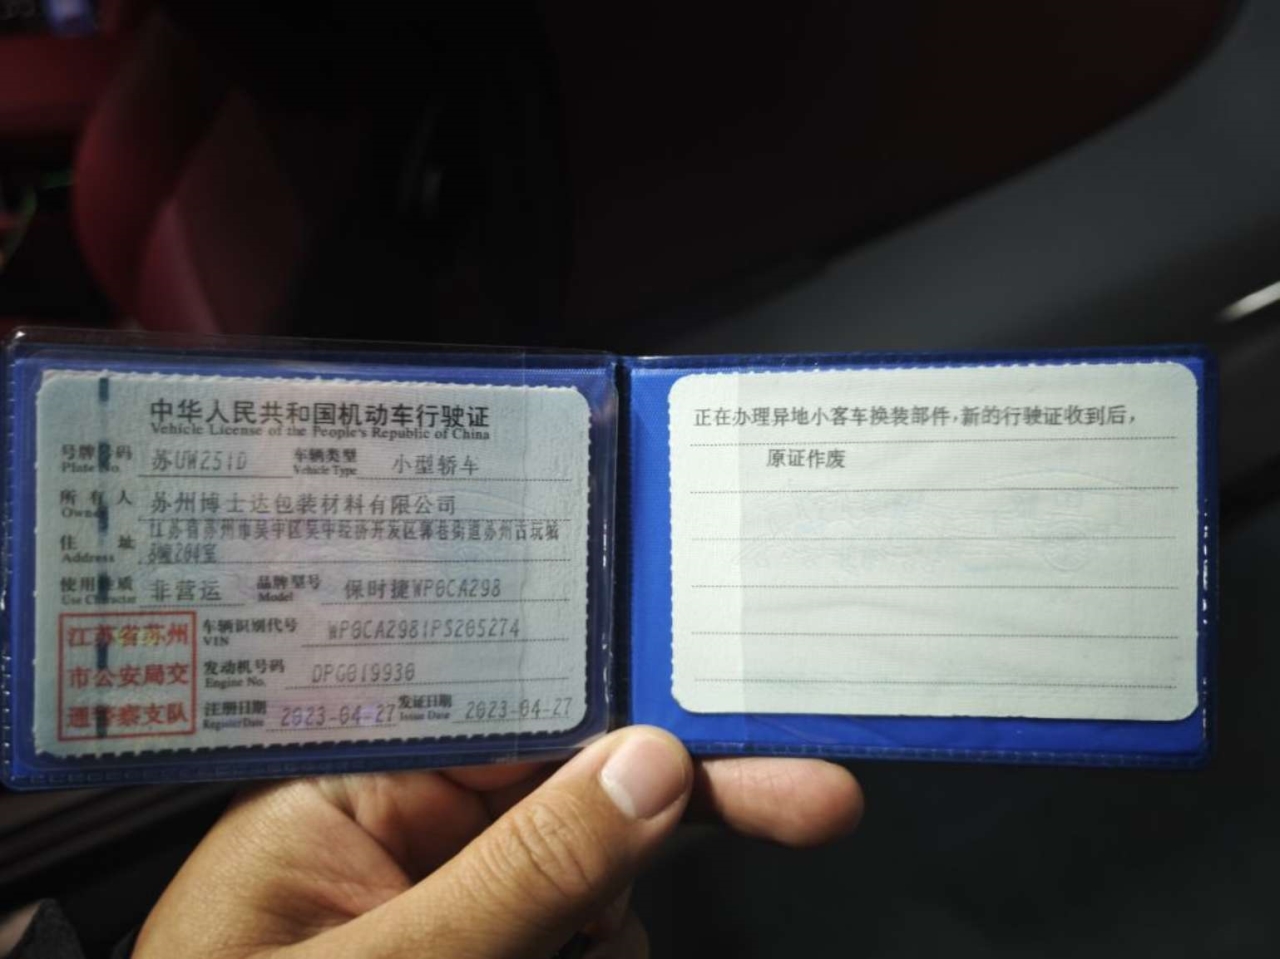 中华人民共和国机动车行驶证
Vehicle License of the People's Republic of China
号牌号码 苏UW251D 车辆类型 小型轿车
Plate No. Vehicle Type
所有人 苏州博士达包装材料有限公司
Owner
住址 江苏省苏州市吴中区吴中经济开发区郭巷街道苏州古玩城
Address 3幢204室
使用性质 非营运 品牌型号 保时捷WP0CA298
Use Character Model
江苏省苏州
市公安局交
通警察支队
车辆识别代号 WP0CA2981PS205274
VIN
发动机号码 DPG019930
Engine No.
注册日期 2023-04-27 发证日期 2023-04-27
Register Date Issue Date
正在办理异地小客车换装部件,新的行驶证收到后,
原证作废